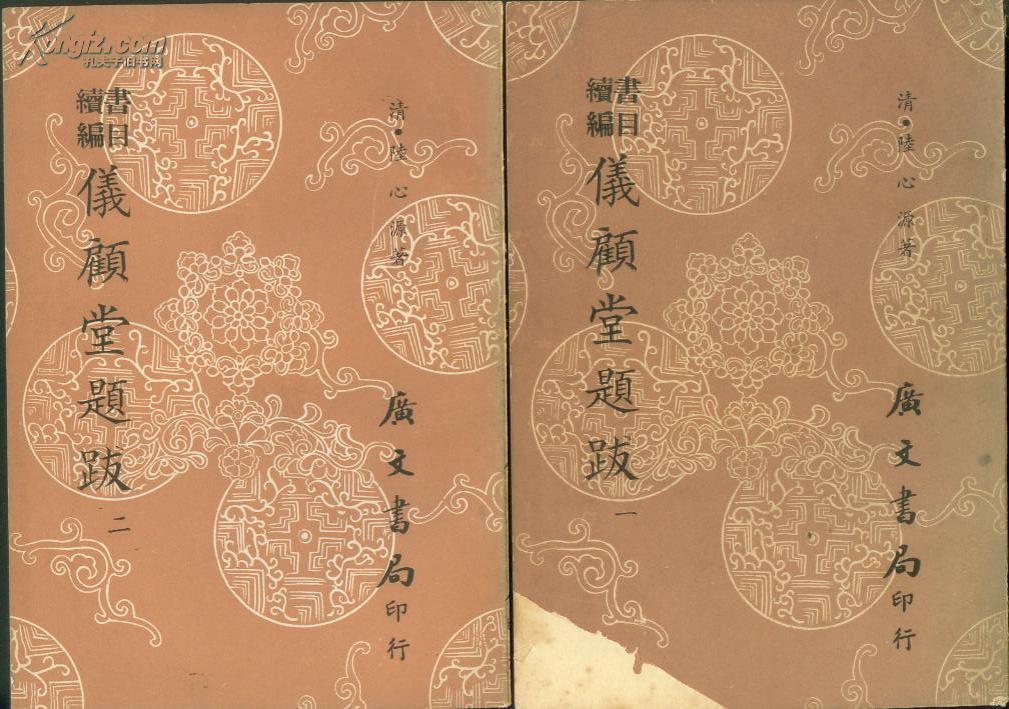 Kongfz.com
孔夫子旧书网
清•陸心源著
書目
續編
儀顧堂題跋 二
廣文書局印行
清•陸心源著
書目
續編
儀顧堂題跋 一
廣文書局印行